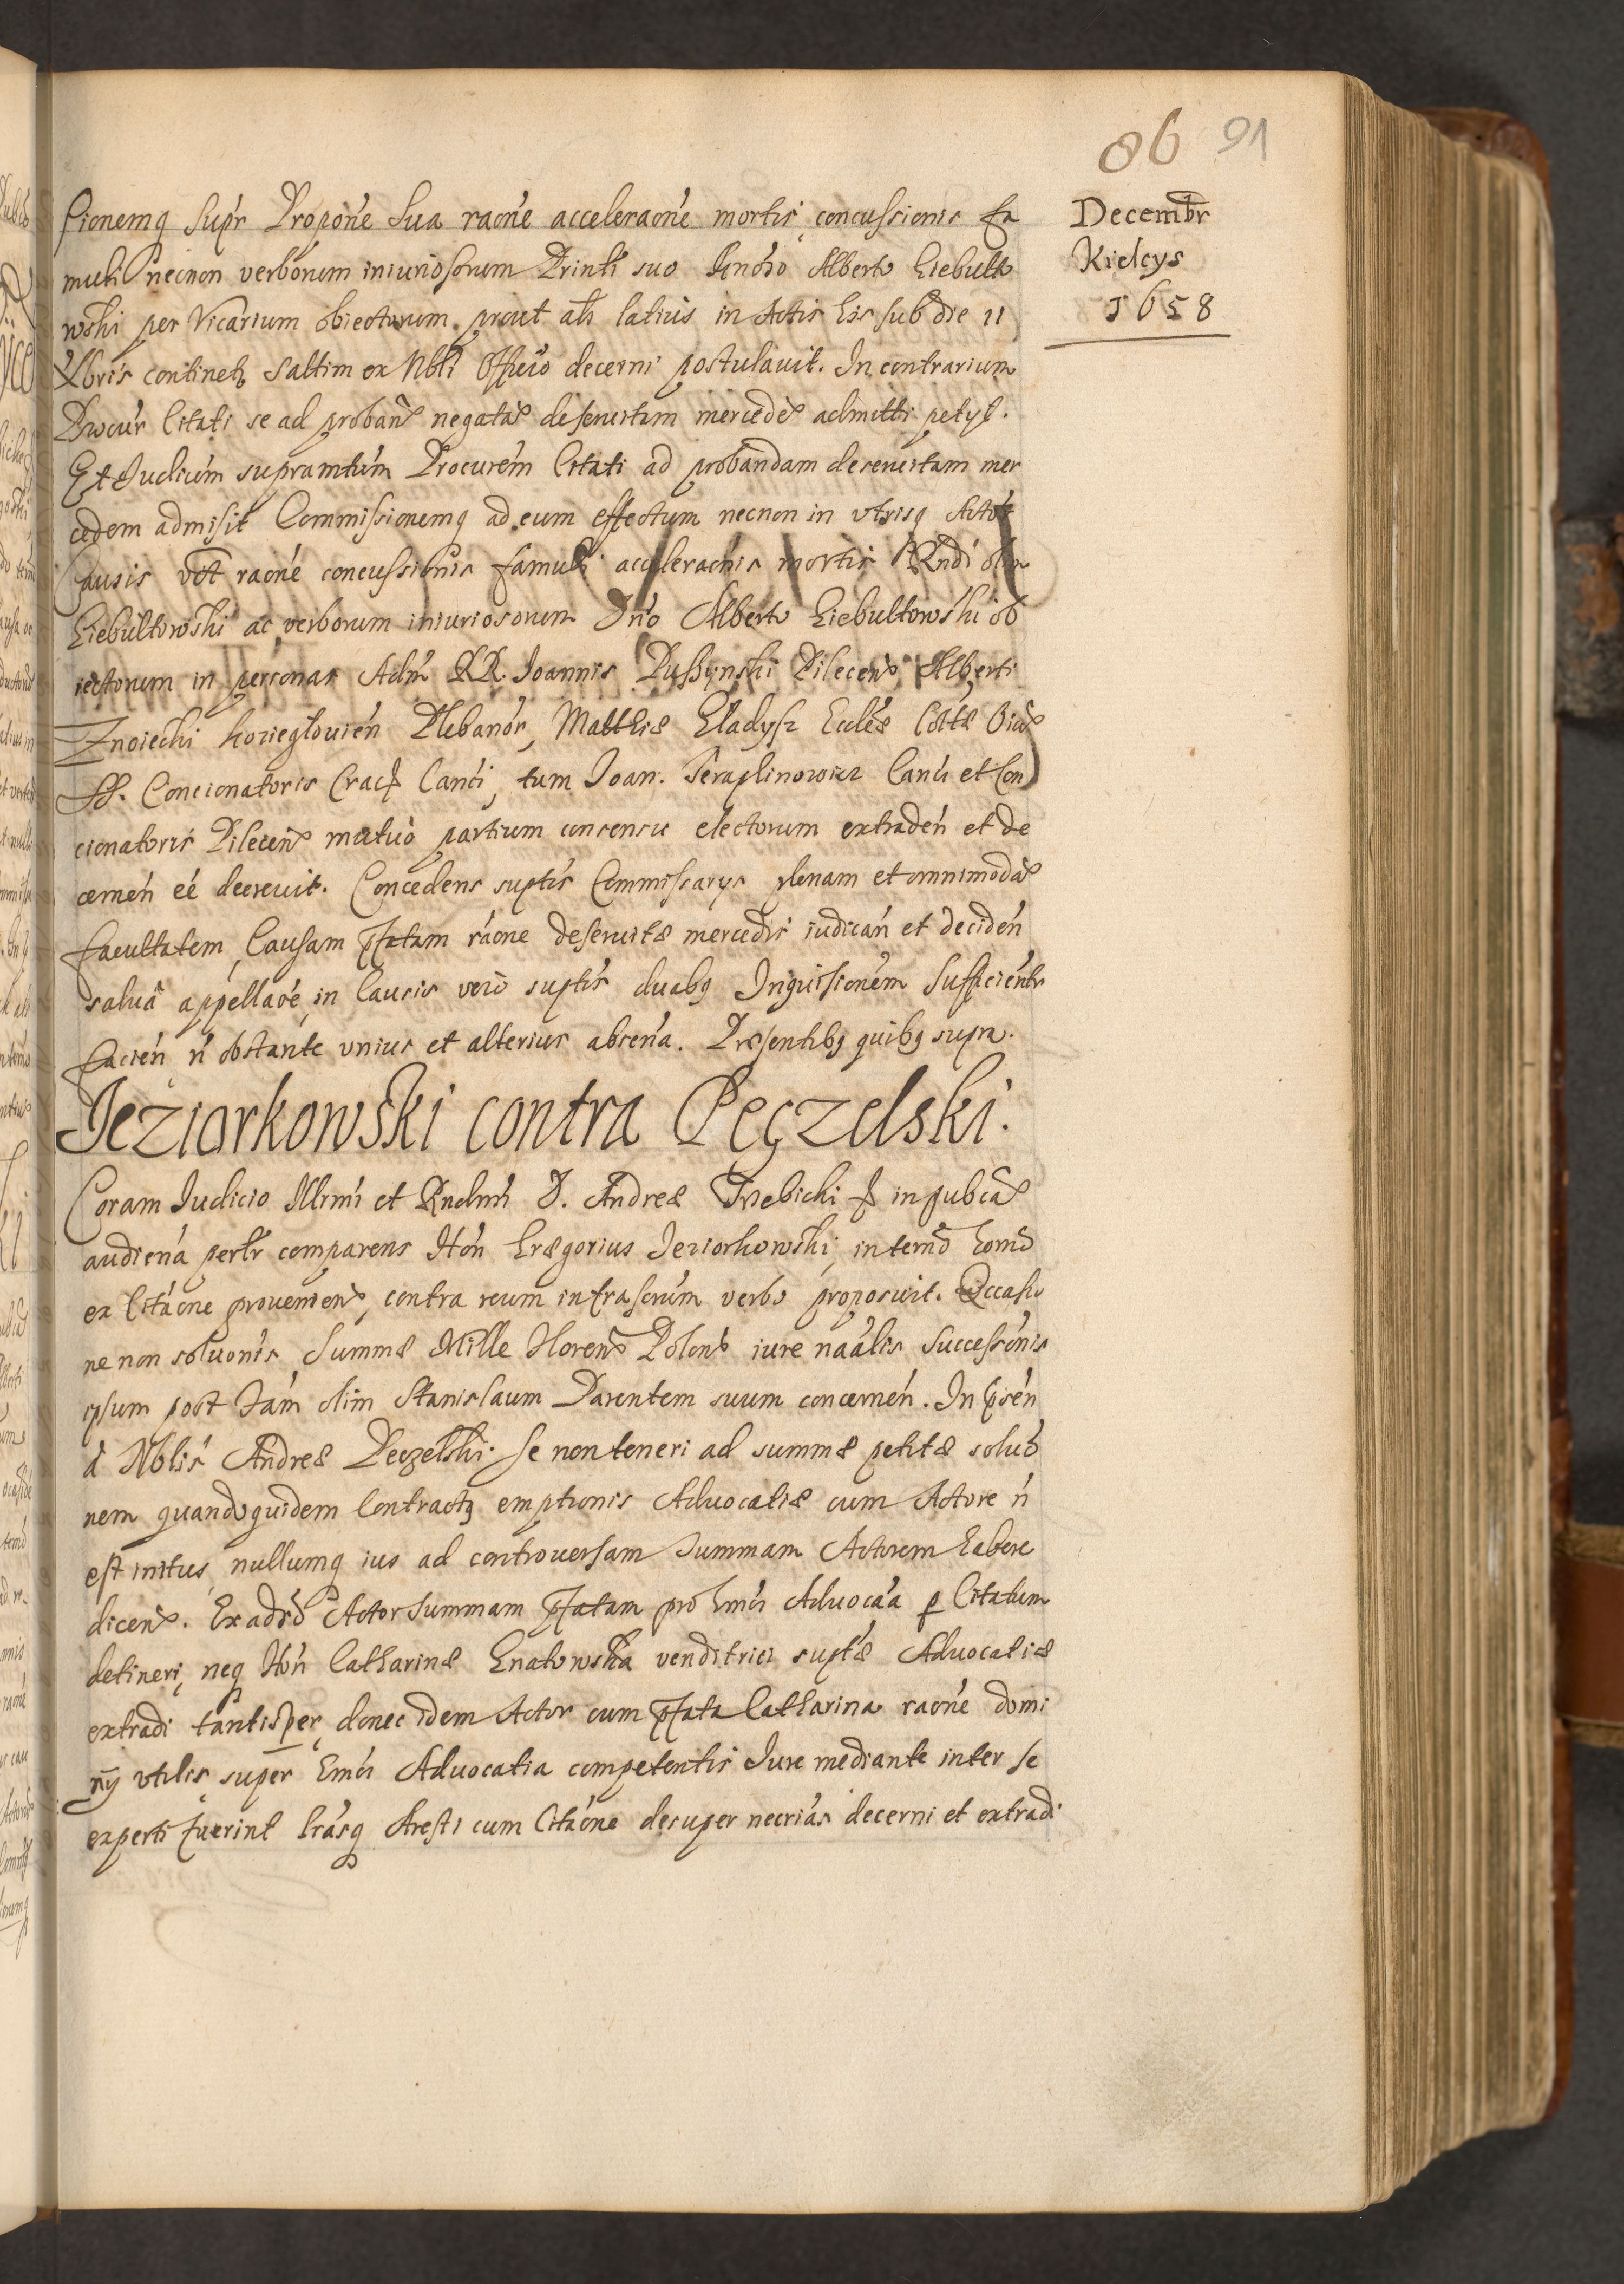 86 91
Decembr
Kielcys
1658
sionemq supr Propone sua raone acceleraone mortis concussionis fa
muli necnon verborum iniuriosorum Prinli suo Gnoso Alberto Giebulto
wski per Vicarium obiectorum, prout ah latius in Actis his sub die 11
Xbris continetr, saltim ex Nbli Officio decerni postulauit. In contrarium
Procur Citati se ad proban negata deseruitam mercede admitti petyt.
Et Iudicium supramtum Procurem Citati ad probandam deseruitam mer
cedem admisit Commissionemq ad eum effectum necnon in vtrisq Actor
Causis vdt raone concussionis famuli acceleraonis mortis Rndi olim
Giebultowski ac verborum iniuriosorum Dno Alberto Giebultowski ob
iectorum in personas Adm RR. Joannis Pussynski Pilecen, Alberti
Znoiecki Kozieglouien Plebanor, Matthiæ Gladysz Eccles Coltæ
SS. Concionatoris Crac Canci, tum Joan. Seraphinowicz Canci et Con
cionatoris Pilecen mutuo partium consensu electorum extraden et de
cernen eé decreuit. Concedens suptis Commissarys plenam et omnimoda
facultatem, Causam pfatam raone deseruitæ mercedis iudican et deciden
salua appellaoe, in Causis vero suptis duabq Inquisionem sufficienter
facien n obstante vnius et alterius absena. Præsentibq quibq supra.
Jeziorkowski contra Pęczelski.
Coram Iudicio Illrmi et Rndmi D. Andreæ Trzebicki p in pubca
audiena perlr comparens Hon Grægorius Jeziorkowski, in termo homo
ex Citaone prouenien, contra reum infrascrum verbo proposuit. Occasio
ne non soluonis Summæ Mille Floren Polon iure naalis successionis
ipsum post Fam olim Stanislaum Parentem suum concernen. In psen
a Nblis Andreæ Pęczelski. se non teneri ad summæ petitæ soluo
nem quandoquidem Contractq emptionis Aduocatiæ cum Actore n
est initus, nullumq ius ad controuersam summam Actorem habere
dicen. Ex aduo Actor summam pfatam pro hmoi Aduocaa p Citatum
detineri, neq Hon Catharinæ Gnatowska venditrici suptæ Aduocatiæ
extradi tantisper, donec idem Actor cum pfata Catharina raone domi
nij vtilis super hmoi Aduocatia competentis Iure mediante inter se
experti fuerint lrasq Aresti cum Citaone desuper necrias decerni et extradi